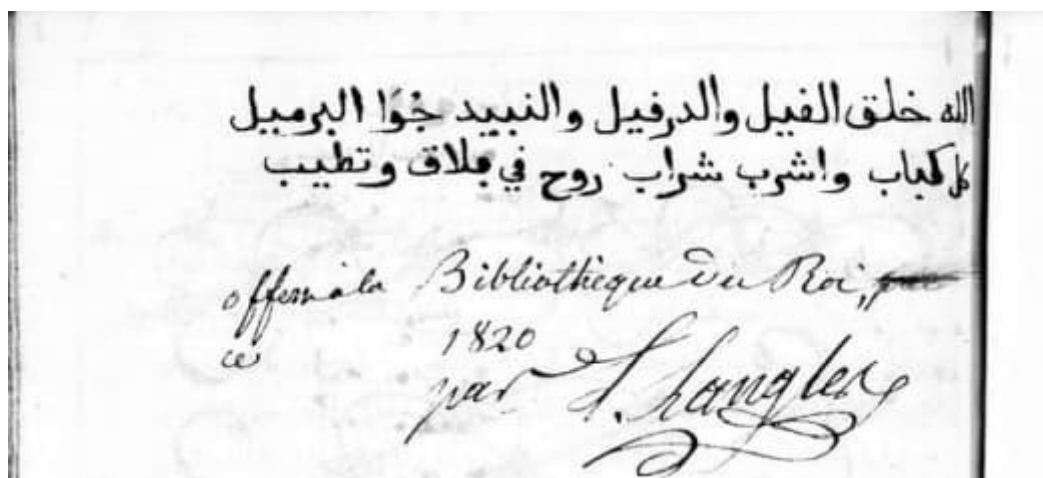 الله خلق الفيل والدرفيل والنبيد جوا البرميل
كل كباب واشرب شراب روح في بلاق وتطيب
offert à la Bibliothèque du Roi,
ce 1820
par L. Langlès